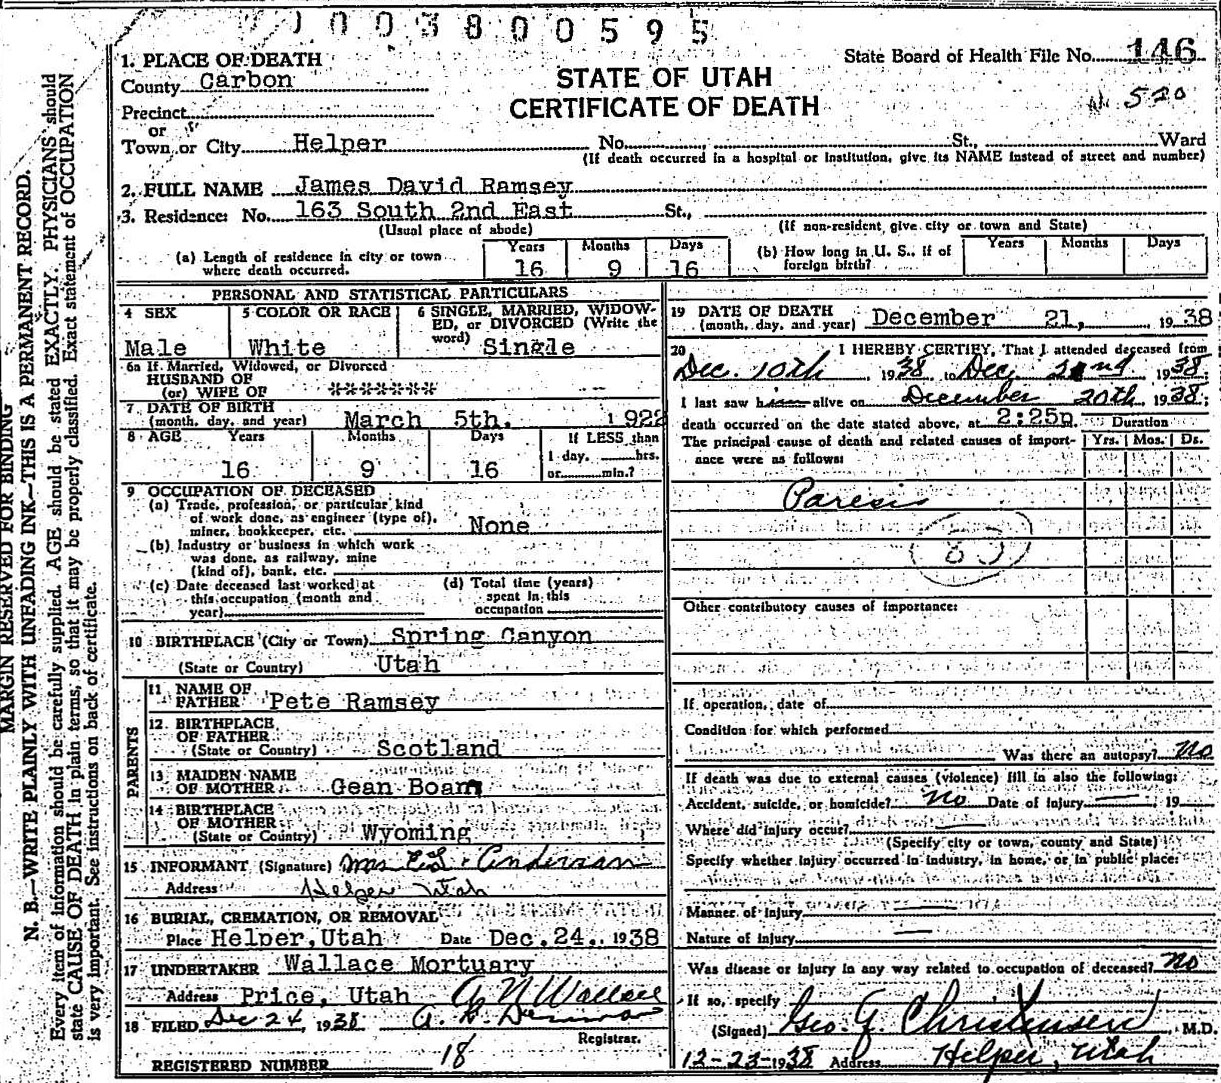 0 0 3 8 0 0 5 9 5
1. PLACE OF DEATH
County Carbon
Precinct
or
Town or City Helper No. St., Ward
(If death occurred in a hospital or institution, give its NAME instead of street and number)
State Board of Health File No. 146
STATE OF UTAH
CERTIFICATE OF DEATH
520
2. FULL NAME James David Ramsey
3. Residence: No. 163 South 2nd East St.,
(Usual place of abode) (If non-resident, give city or town and State)
(a) Length of residence in city or town where death occurred. Years 16 Months 9 Days 16
(b) How long in U. S., if of foreign birth? Years Months Days
PERSONAL AND STATISTICAL PARTICULARS
4 SEX Male
5 COLOR OR RACE White
6 SINGLE, MARRIED, WIDOWED, or DIVORCED (Write the word) Single
6a If Married, Widowed, or Divorced
HUSBAND OF
(or) WIFE OF *******
7 DATE OF BIRTH
(month, day, and year) March 5th. 1922
8 AGE Years 16 Months 9 Days 16 If LESS than 1 day, hrs. or min.?
9 OCCUPATION OF DECEASED
(a) Trade, profession, or particular kind
of work done, as engineer (type of),
miner, bookkeeper, etc. None
(b) Industry or business in which work
was done, as railway, mine
(kind of), bank, etc.
(c) Date deceased last worked at
this occupation (month and
year)
(d) Total time (years)
spent in this
occupation
10 BIRTHPLACE (City or Town) Spring Canyon
(State or Country) Utah
PARENTS
11 NAME OF
FATHER Pete Ramsey
12. BIRTHPLACE
OF FATHER
(State or Country) Scotland
13 MAIDEN NAME
OF MOTHER Gean Boam
14 BIRTHPLACE
OF MOTHER
(State or Country) Wyoming
15 INFORMANT (Signature) Mrs E. L. Anderson
Address Helper Utah
16 BURIAL, CREMATION, OR REMOVAL
Place Helper, Utah Date Dec. 24, 1938
17 UNDERTAKER Wallace Mortuary
Address Price, Utah A N Wallace
18 FILED Dec 24, 1938
Registrar.
REGISTERED NUMBER 18
19 DATE OF DEATH
(month, day, and year) December 21, 1938
20 I HEREBY CERTIFY, That I attended deceased from
Dec. 10th, 1938 to Dec 21nd 1938;
I last saw h alive on December 20th, 1938;
death occurred on the date stated above, at 2:25p. Duration
The principal cause of death and related causes of importance were as follows: Yrs. Mos. Ds.
Paresis
Other contributory causes of importance:
If operation, date of
Condition for which performed
Was there an autopsy? No
If death was due to external causes (violence) fill in also the following:
Accident, suicide, or homicide? No Date of injury 19
Where did injury occur?
(Specify city or town, county and State)
Specify whether injury occurred in industry, in home, or in public place:
Manner of injury
Nature of injury
Was disease or injury in any way related to occupation of deceased? No
If so, specify
(Signed) Geo. G Christensen, M.D.
12-23-1938 Address Helper, Utah
MARGIN RESERVED FOR BINDING
N. B.—WRITE PLAINLY WITH UNFADING INK—THIS IS A PERMANENT RECORD.
Every item of information should be carefully supplied. AGE should be stated EXACTLY. PHYSICIANS should
state CAUSE OF DEATH in plain terms, so that it may be properly classified. Exact statement of OCCUPATION
is very important. See instructions on back of certificate.